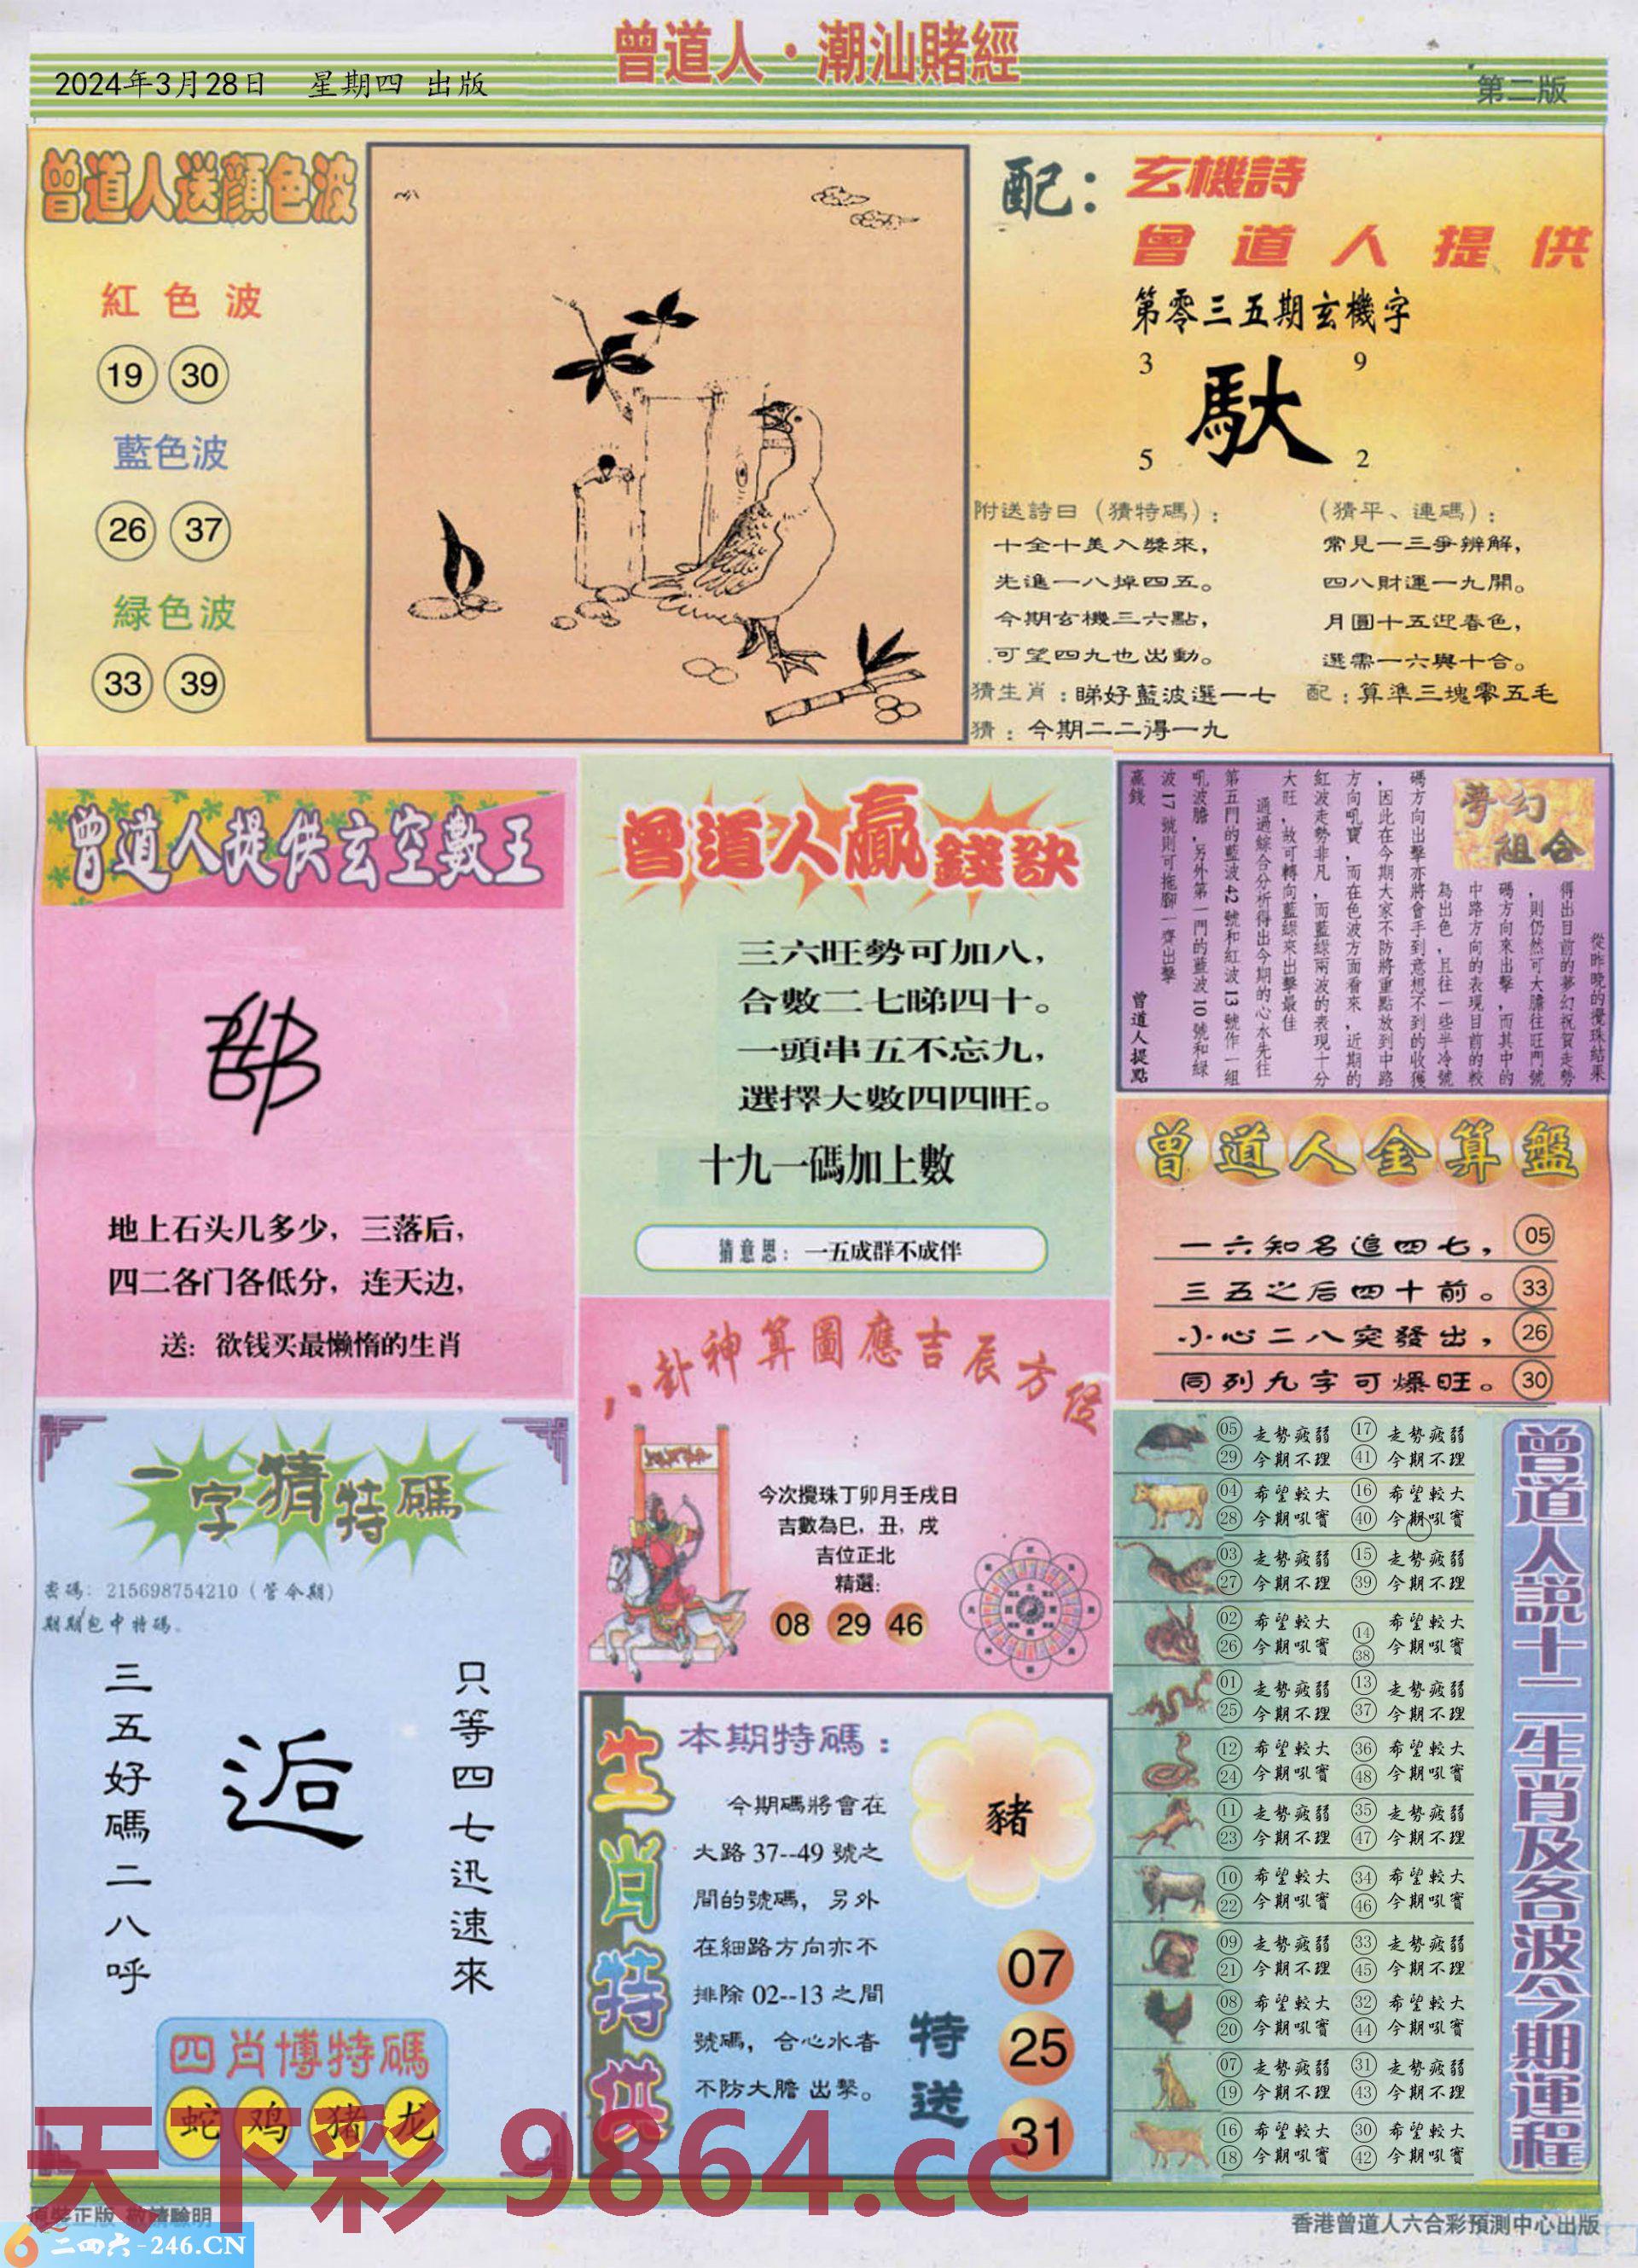 曾道人·潮汕賭經
2024年3月28日 星期四 出版
第二版
曾道人送顔色波
紅色波
19 30
藍色波
26 37
緑色波
33 39
配：
玄機詩
曾道人提供
第零三五期玄機字
3 9
馱
5 2
附送詩曰（猜特碼）：
十全十美入獎來，
先進一八掉四五。
今期玄機三六點，
可望四九也出動。
（猜平、連碼）：
常見一三爭辨解，
四八財運一九開。
月圓十五迎春色，
選需一六與十合。
猜生肖：睇好藍波選一七
配：算準三塊零五毛
猜：今期二二得一九
曾道人提供玄空數王
地上石头几多少，三落后，
四二各门各低分，连天边，
送：欲钱买最懒惰的生肖
曾道人贏錢訣
三六旺勢可加八，
合數二七睇四十。
一頭串五不忘九，
選擇大數四四旺。
十九一碼加上數
猜意思：一五成群不成伴
夢幻
組合
從昨晚的攪珠結果
得出目前的夢幻祝賀走勢
，則仍然可大膽往旺門號
碼方向來出擊，而其中的
中路方向的表現目前的較
為出色，且往一些半冷號
碼方向出擊亦將會手到意想不到的收獲
，因此在今期大家不防將重點放到中路
方向吼寶，而在色波方面看來，近期的
紅波走勢非凡，而藍綠兩波的表現十分
大旺，故可轉向藍綠來出擊最佳
通過綜合分析得出今期的心水先往
第五門的藍波42號和紅波13號作一組
吼波膽，另外第一門的藍波10號和綠
波17號則可拖腳一齊出擊
贏錢
曾道人提點
曾道人金算盤
一六知名追四七， 05
三五之后四十前。 33
小心二八突發出， 26
同列九字可爆旺。 30
八卦神算圖應吉辰方位
今次攪珠丁卯月壬戌日
吉數為巳，丑，戌
吉位正北
精選:
08 29 46
一字猜特碼
密碼: 215698754210（管今期）
期期包中特碼。
三五好碼二八呼
逅
只等四七迅速來
四肖博特碼
蛇 鸡 猪 龙
生肖特供
本期特碼：
今期碼將會在
大路37--49號之
間的號碼，另外
在細路方向亦不
排除02--13之間
號碼，合心水者
不防大膽出擊。
豬
特送
07
25
31
曾道人說十二生肖及各波今期運程
05 走勢疲弱 17 走勢疲弱
29 今期不理 41 今期不理
04 希望較大 16 希望較大
28 今期吼實 40 今期吼實
03 走勢疲弱 15 走勢疲弱
27 今期不理 39 今期不理
02 希望較大 14 希望較大
26 今期吼實 38 今期吼實
01 走勢疲弱 13 走勢疲弱
25 今期不理 37 今期不理
12 希望較大 36 希望較大
24 今期吼實 48 今期吼實
11 走勢疲弱 35 走勢疲弱
23 今期不理 47 今期不理
10 希望較大 34 希望較大
22 今期吼實 46 今期吼實
09 走勢疲弱 33 走勢疲弱
21 今期不理 45 今期不理
08 希望較大 32 希望較大
20 今期吼實 44 今期吼實
07 走勢疲弱 31 走勢疲弱
19 今期不理 43 今期不理
16 希望較大 30 希望較大
18 今期吼實 42 今期吼實
天下彩 9864.cc
原裝正版 敬請驗明
二四六-246.CN
香港曾道人六合彩預測中心出版